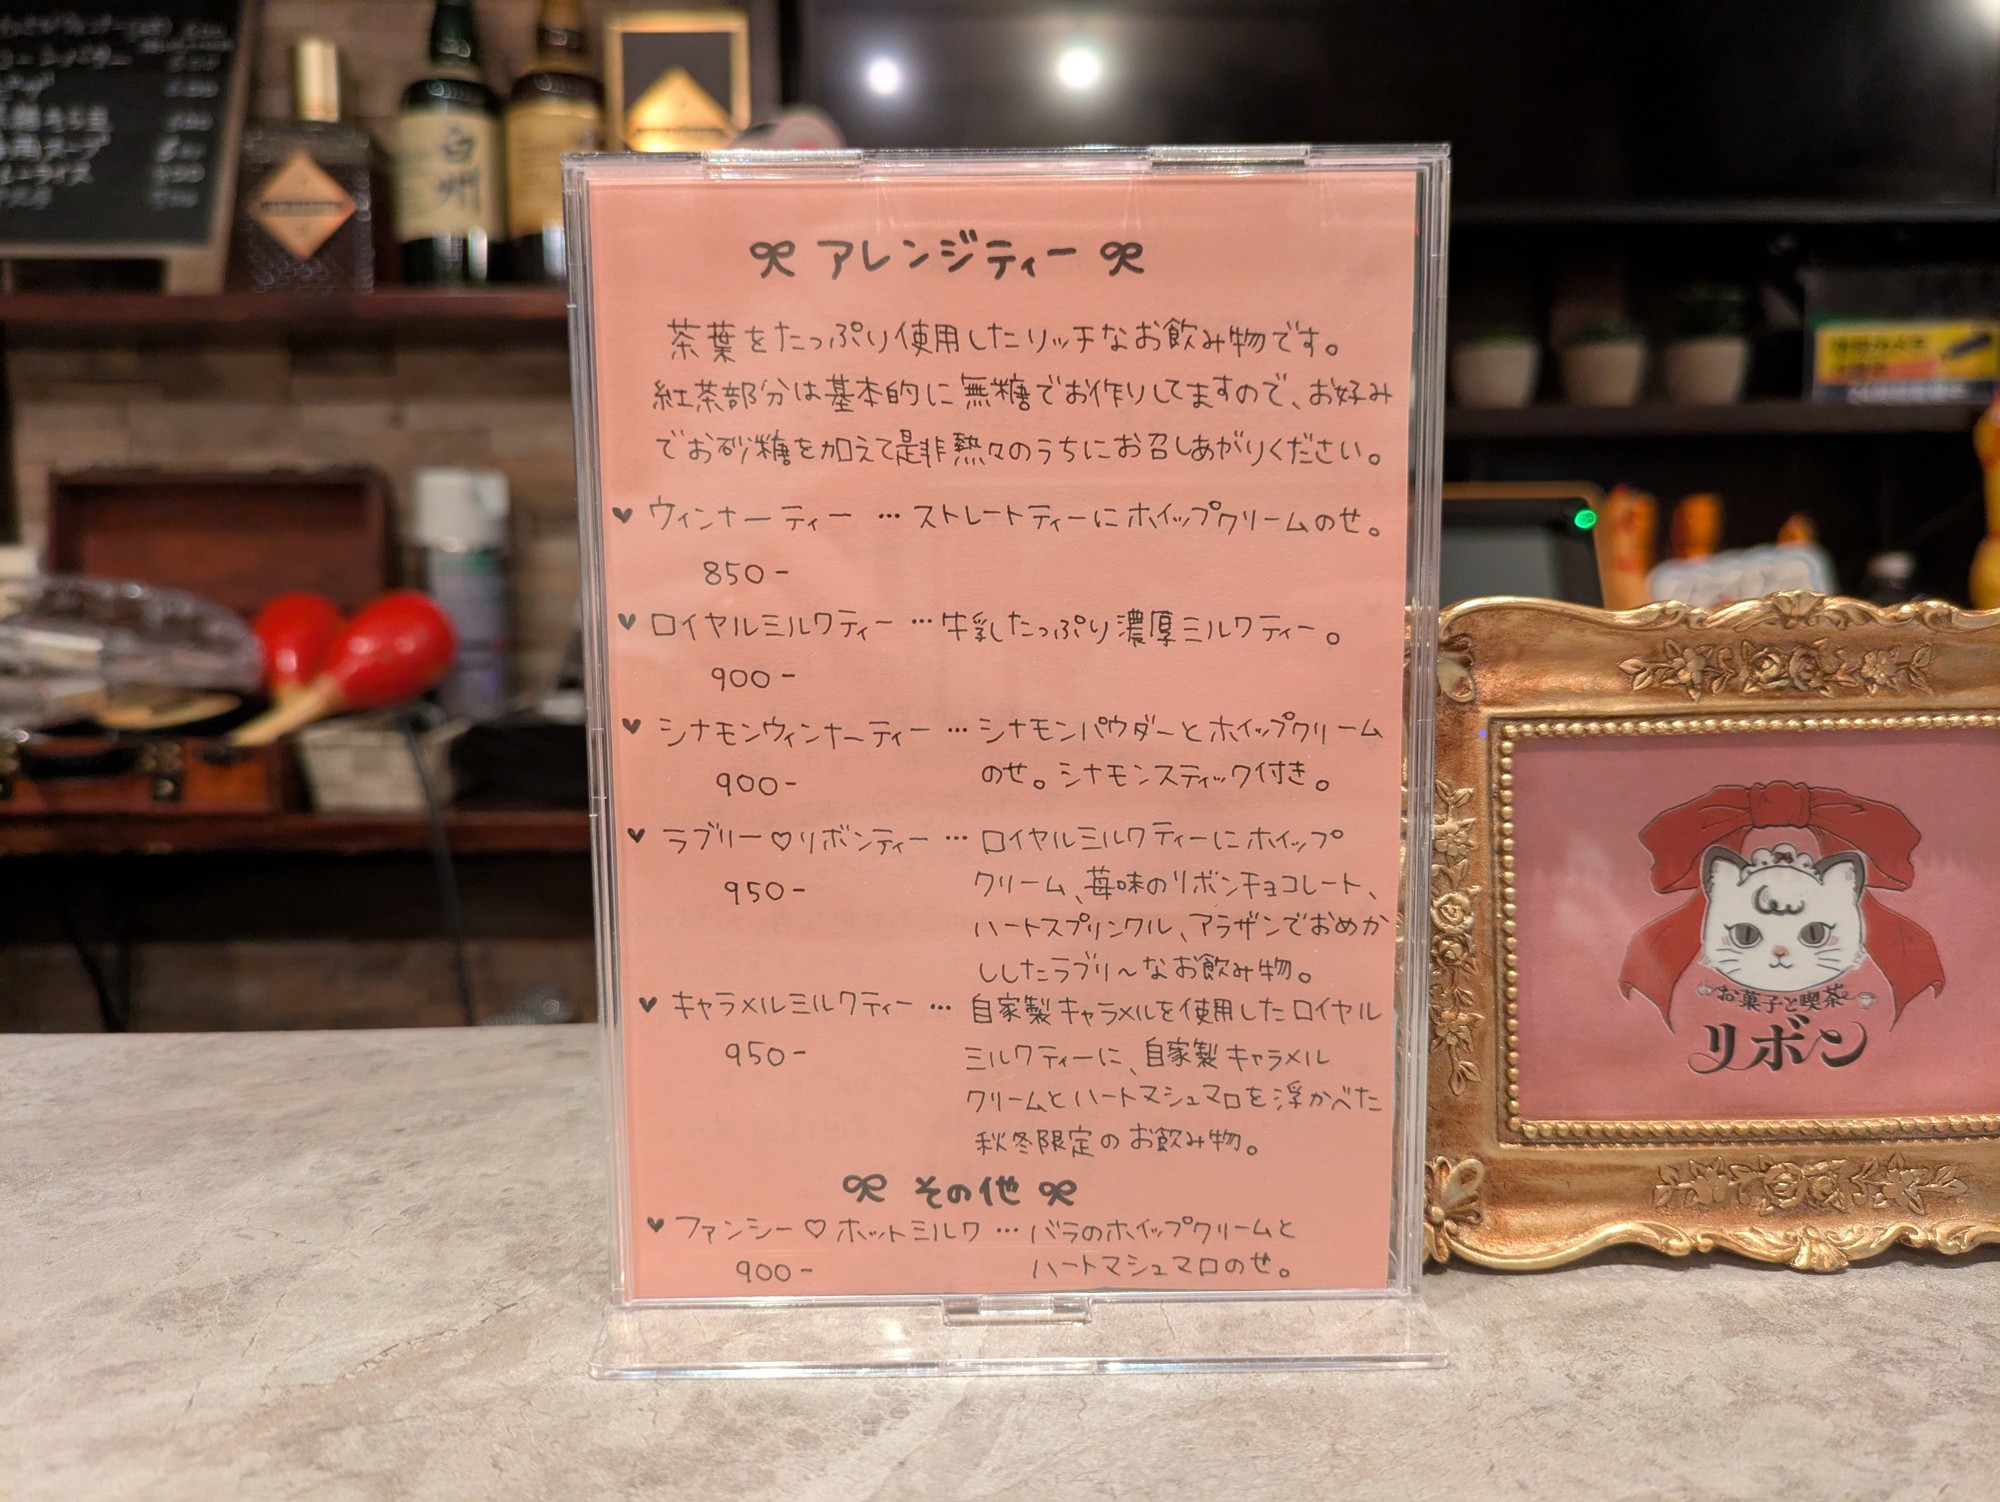 アレンジティー
茶葉をたっぷり使用したリッチなお飲み物です。
紅茶部分は基本的に無糖でお作りしてますので、お好み
でお砂糖を加えて是非熱々のうちにお召しあがりください。
♥ ウィンナーティー … ストレートティーにホイップクリームのせ。
850-
♥ ロイヤルミルクティー … 牛乳たっぷり濃厚ミルクティー。
900-
♥ シナモンウィンナーティー … シナモンパウダーとホイップクリーム
のせ。シナモンスティック付き。
900-
♥ ラブリー♡リボンティー … ロイヤルミルクティーにホイップ
クリーム、苺味のリボンチョコレート、
950-
ハートスプリンクル、アラザンでおめか
ししたラブリ〜なお飲み物。
♥ キャラメルミルクティー … 自家製キャラメルを使用したロイヤル
950-
ミルクティーに、自家製キャラメル
クリームとハートマシュマロを浮かべた
秋冬限定のお飲み物。
その他
♥ ファンシー♡ホットミルク … バラのホイップクリームと
900-
ハートマシュマロのせ。
お菓子と喫茶
リボン
白州